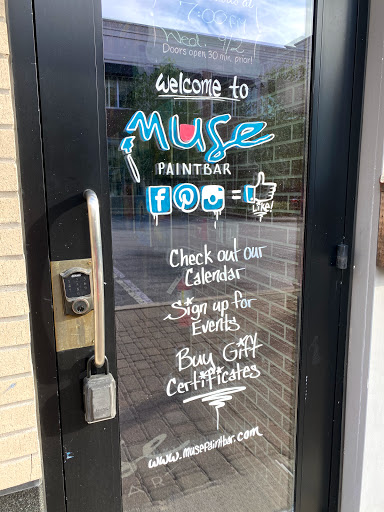 Wed. 9/2
Doors open 30 min. prior!
welcome to
muse
PAINTBAR
f P = Like!
Check out our
Calendar
Sign up for
Events
Buy Gift
Certificates
www.musepaintbar.com